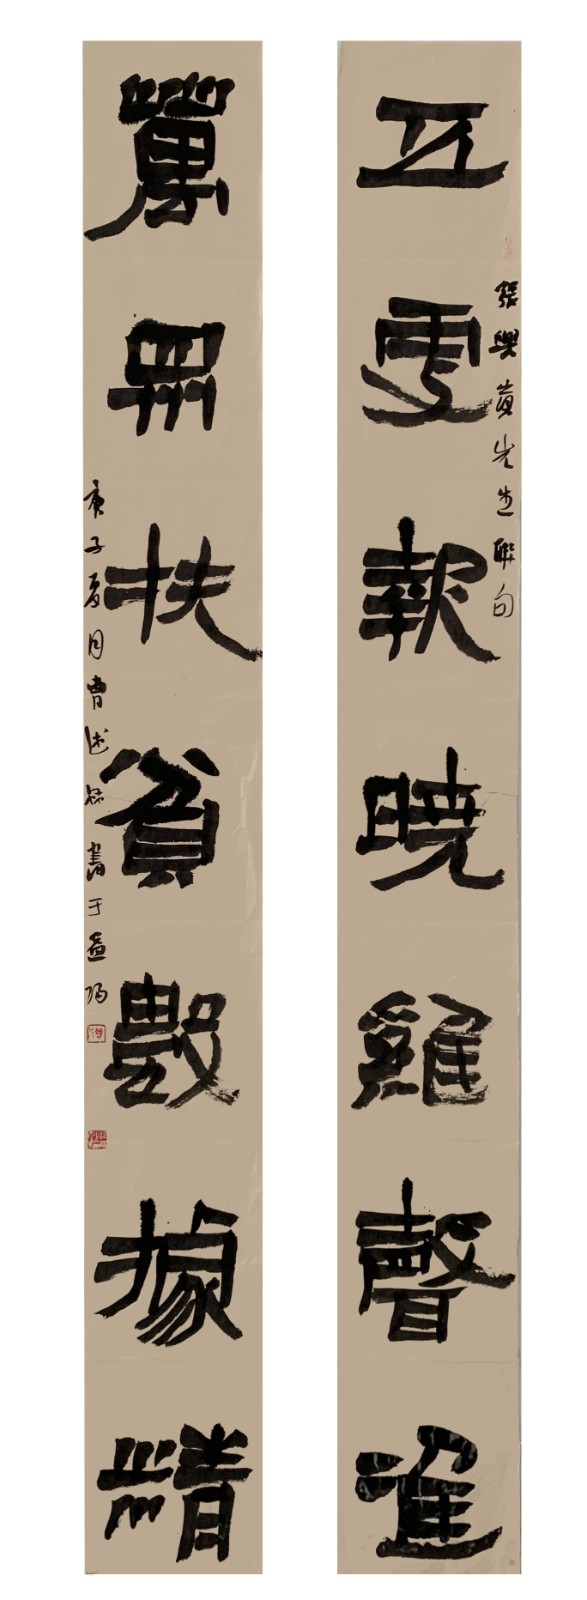 五更報曉雞聲進
張興黃先生聯句
萬眾扶貧數據精
庚子夏月曹述林書于益陽